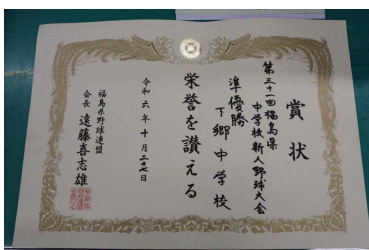 賞状
第三十一回福島県
中学校新人野球大会
準優勝
下郷中学校
栄誉を讃える
令和六年十月二十七日
福島県野球連盟
会長 遠藤喜志雄